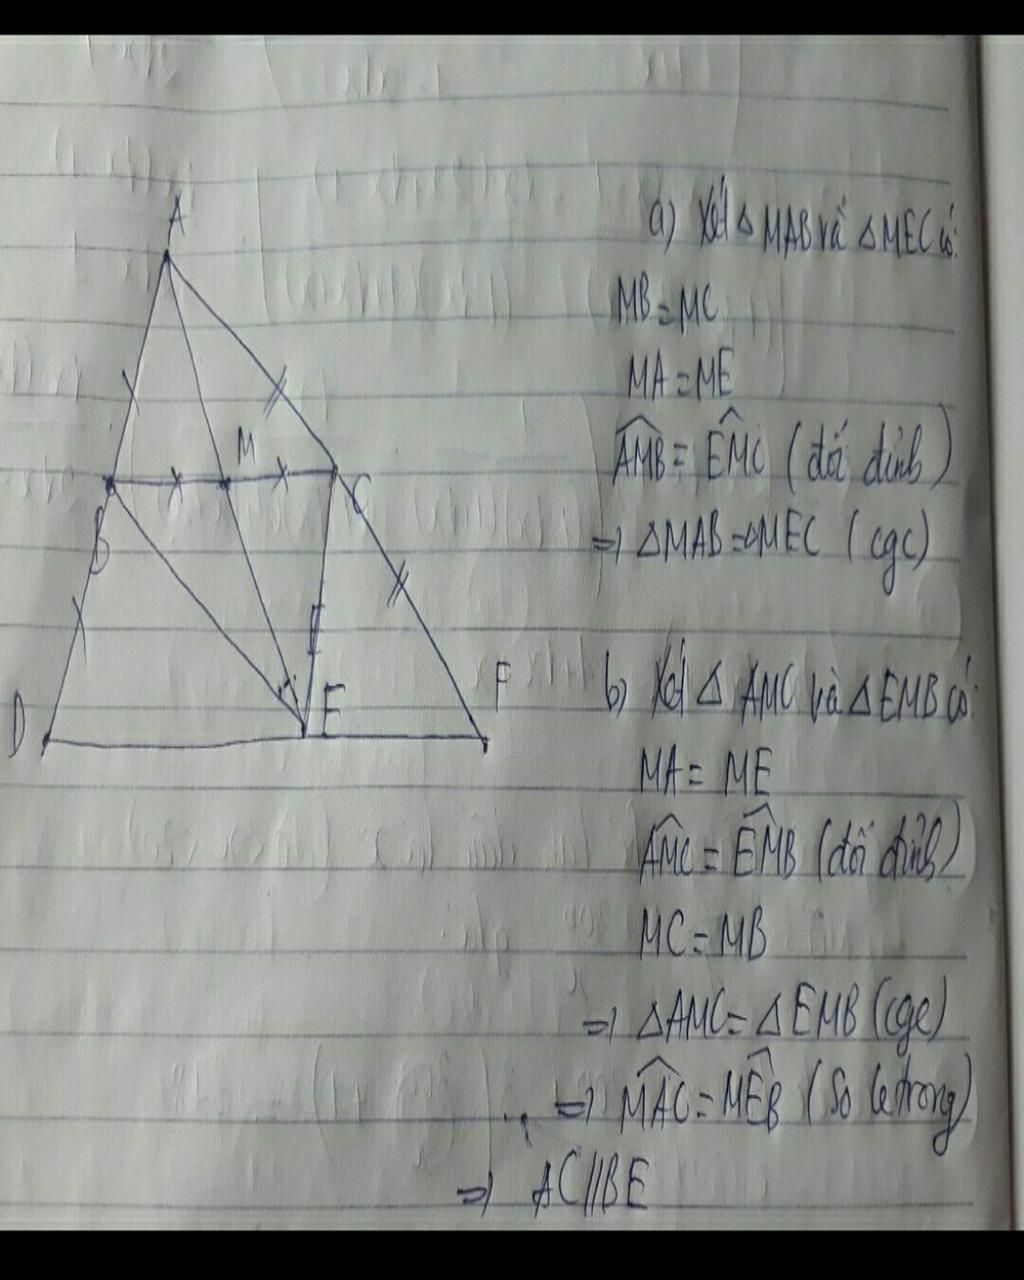 A
M
B
C
D
E
F
a) Xét Δ MAB và Δ MEC có:
MB = MC
MA = ME
\widehat{AMB} = \widehat{EMC} (đối đỉnh)
=> ΔMAB = ΔMEC (cgc)
b) Xét Δ AMC và Δ EMB có:
MA = ME
\widehat{AMC} = \widehat{EMB} (đối đỉnh)
MC = MB
=> ΔAMC = Δ EMB (cgc)
=> \widehat{MAC} = \widehat{MEB} (so le trong)
=> AC//BE